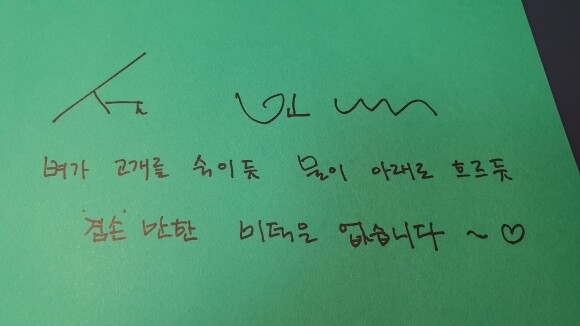 벼가 고개를 숙이듯 물이 아래로 흐르듯
"겸손" 만한 미덕은 없습니다 ~ ♡